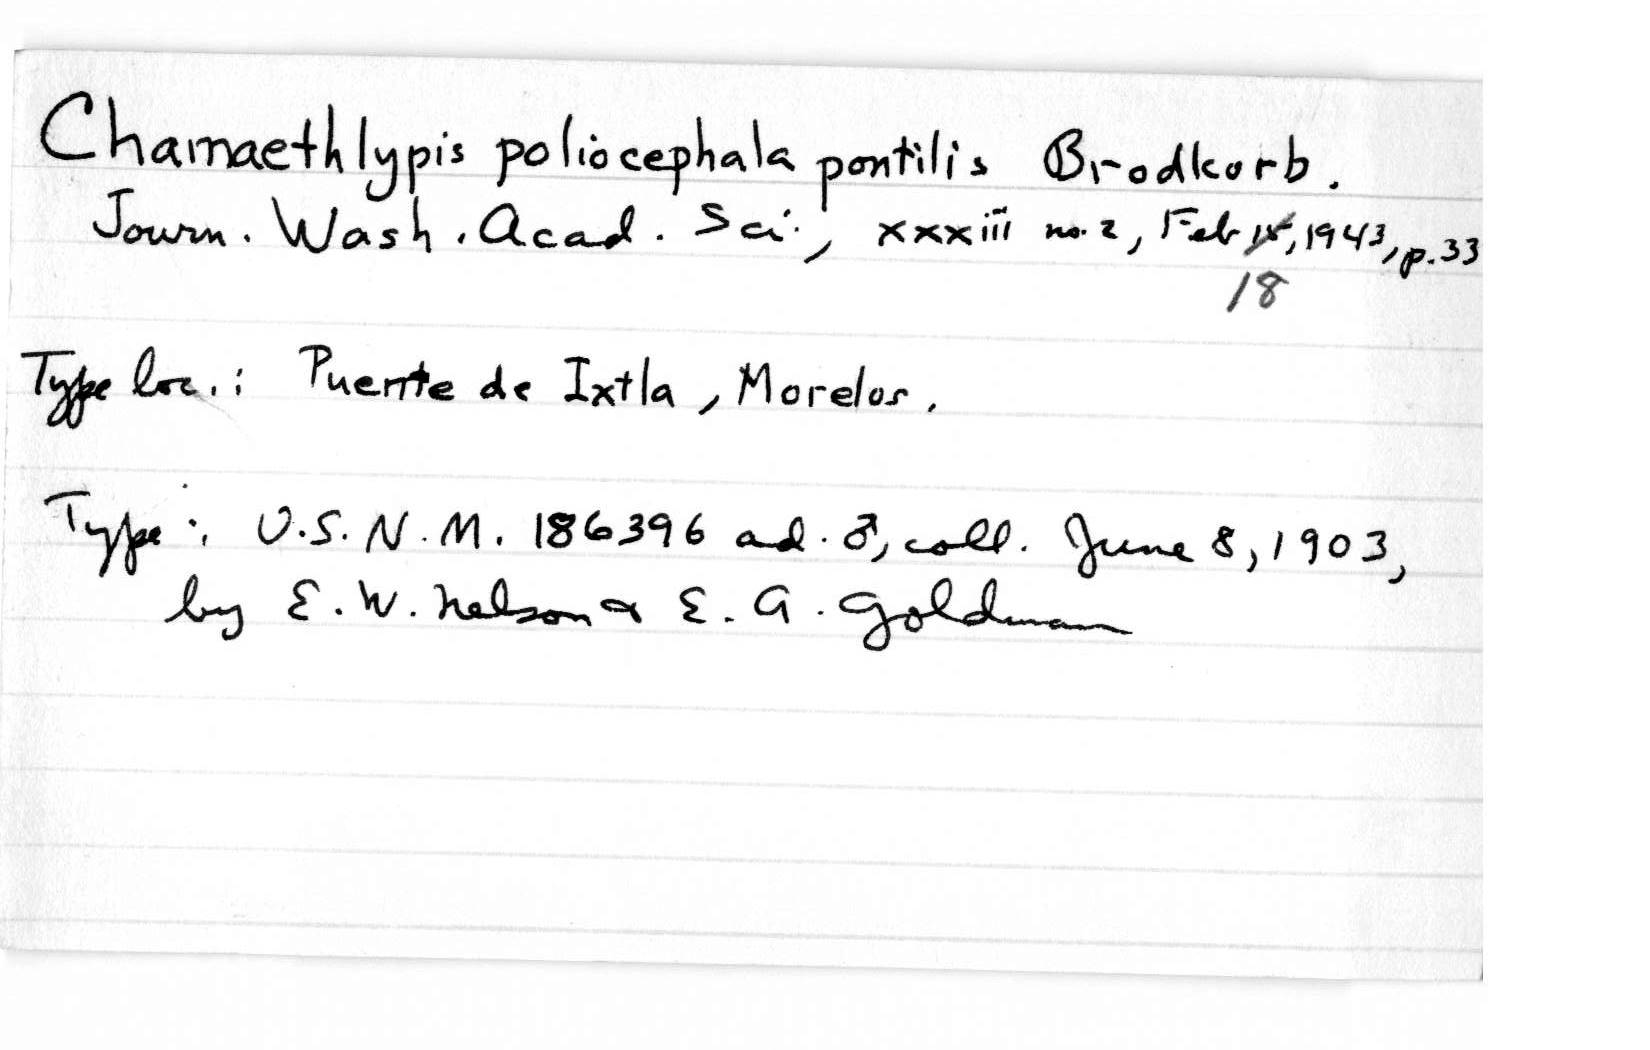 Chamaethlypis poliocephala pontilis Brodkorb.
Journ. Wash. Acad. Sci., xxxiii no. 2, Feb 15, 1943, p. 33
18
Type loc.: Puente de Ixtla, Morelos.
Type: U.S.N.M. 186396 ad. ♂, coll. June 8, 1903,
by E. W. Nelson & E. A. Goldman